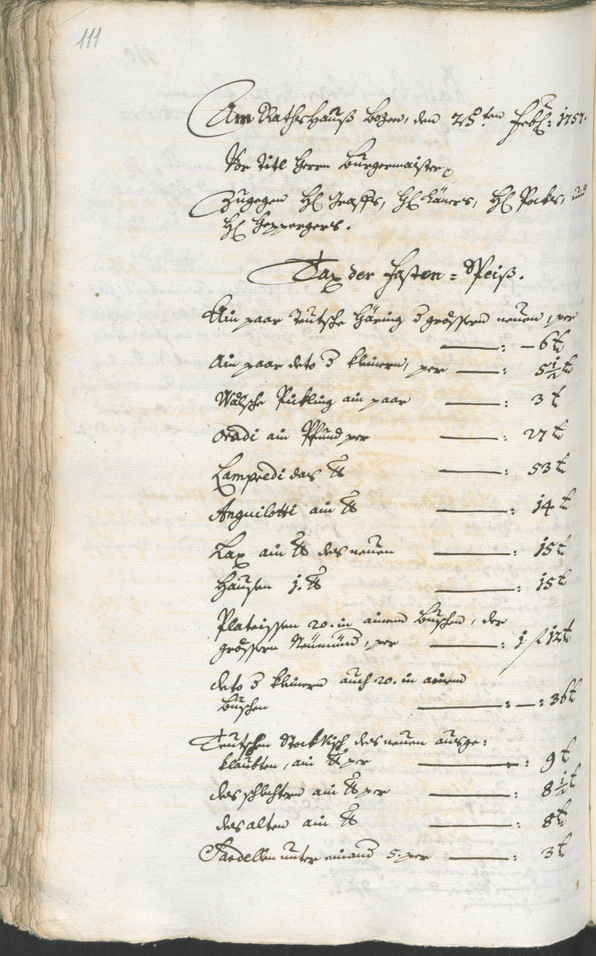 111
Am Rathshauß Bozen, den 25ten Feb: 1757.
Vor Titl Herrn Burgermaister
Zugegen H: Graffs, H: Käners, H: Pocks, und
H: Heppergers.
Tax der Fasten-Speiß.
Ain paar teutsche Häring d grössern neuen, per
— : — 6 k
Ain paar deto d kleinern, per — : 5 1/2 k
Wälsche Pickling ain paar — : 3 k
Oradi ain Pfund per — : 27 k
Lampredi das ℔ — : 53 k
Anguilotti ain ℔ — : 14 k
Lax ain ℔ des neuen — : 15 k
Hausen 1. ℔ — : 15 k
Plateissen 20. in ainem Buschen, der
grössern Neumünd, per — : 1 f 12 k
deto d kleinern auch 20. in ainem
Buschen — : — : 36 k
Teutschen Stockfisch des neuen ausge:
klaubten, ain ℔ per — : 9 k
des schlechtern ain ℔ per — : 8 1/2 k
des alten ain ℔ — : 8 k
Sardellen unter einand 5. per — : 3 k